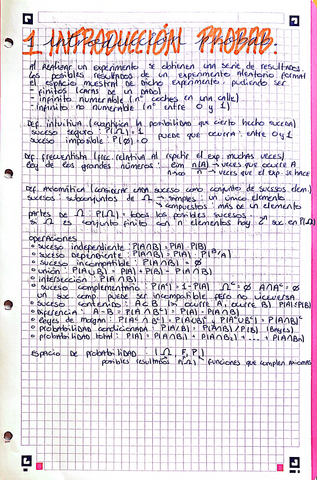 1. INTRODUCCIÓN PROBAB.
Al realizar un experimento se obtienen una serie de resultados.
Los posibles resultados de un experimento aleatorio forman
el espacio muestral de dicho experimento, pudiendo ser
- finitos (caras de un dado)
- infinito numerable (nº coches en una calle)
- infinito no numerable (nº entre 0 y 1)
Def. intuitiva (cuantifica la posibilidad que cierto hecho suceda)
suceso seguro: P(Ω) = 1
suceso imposible: P(∅) = 0
puede que ocurra: entre 0 y 1
Def. frecuentista (frec. relativa al repetir el exp. muchas veces)
Ley de los grandes números: lim n(A) → veces que ocurre A
n→∞ n → veces que el exp. se hace
Def. axiomática (considerar cada suceso como conjunto de sucesos elem.)
sucesos: subconjuntos de Ω → simples: un único elemento
→ compuestos: más de un elemento
partes de Ω: P(Ω) = todos los posibles sucesos.
si Ω es conjunto finito con n elementos hay 2ⁿ suc. en P(Ω)
operaciones
suceso independiente: P(A∩B) = P(A)·P(B)
suceso dependiente: P(A∩B) = P(A)·P(B/A)
suceso incompatible: P(A∩B) = ∅
unión: P(A∪B) = P(A) + P(B) - P(A∩B)
intersección: P(A∩B)
suceso complementario: P(Aᶜ) = 1-P(A) Ωᶜ = ∅
un suc. comp. puede ser incompatible, pero no viceversa
suceso contenido: A⊂B
diferencia: A-B = P(A∩Bᶜ) = P(A) - P(A∩B)
leyes de morgan: P(Aᶜ∩Bᶜ) = P(A∪B)ᶜ y P(Aᶜ∪Bᶜ) = P(A∩B)ᶜ
probabilidad condicionada: P(A/B) = P(A∩B)/P(B) (Bayes)
probabilidad total: P(A) = P(A∩B₁) + P(A∩B₂) + ... + P(A∩Bₙ)
espacio de probabilidad
posibles resultados
funciones que cumplen axiomas